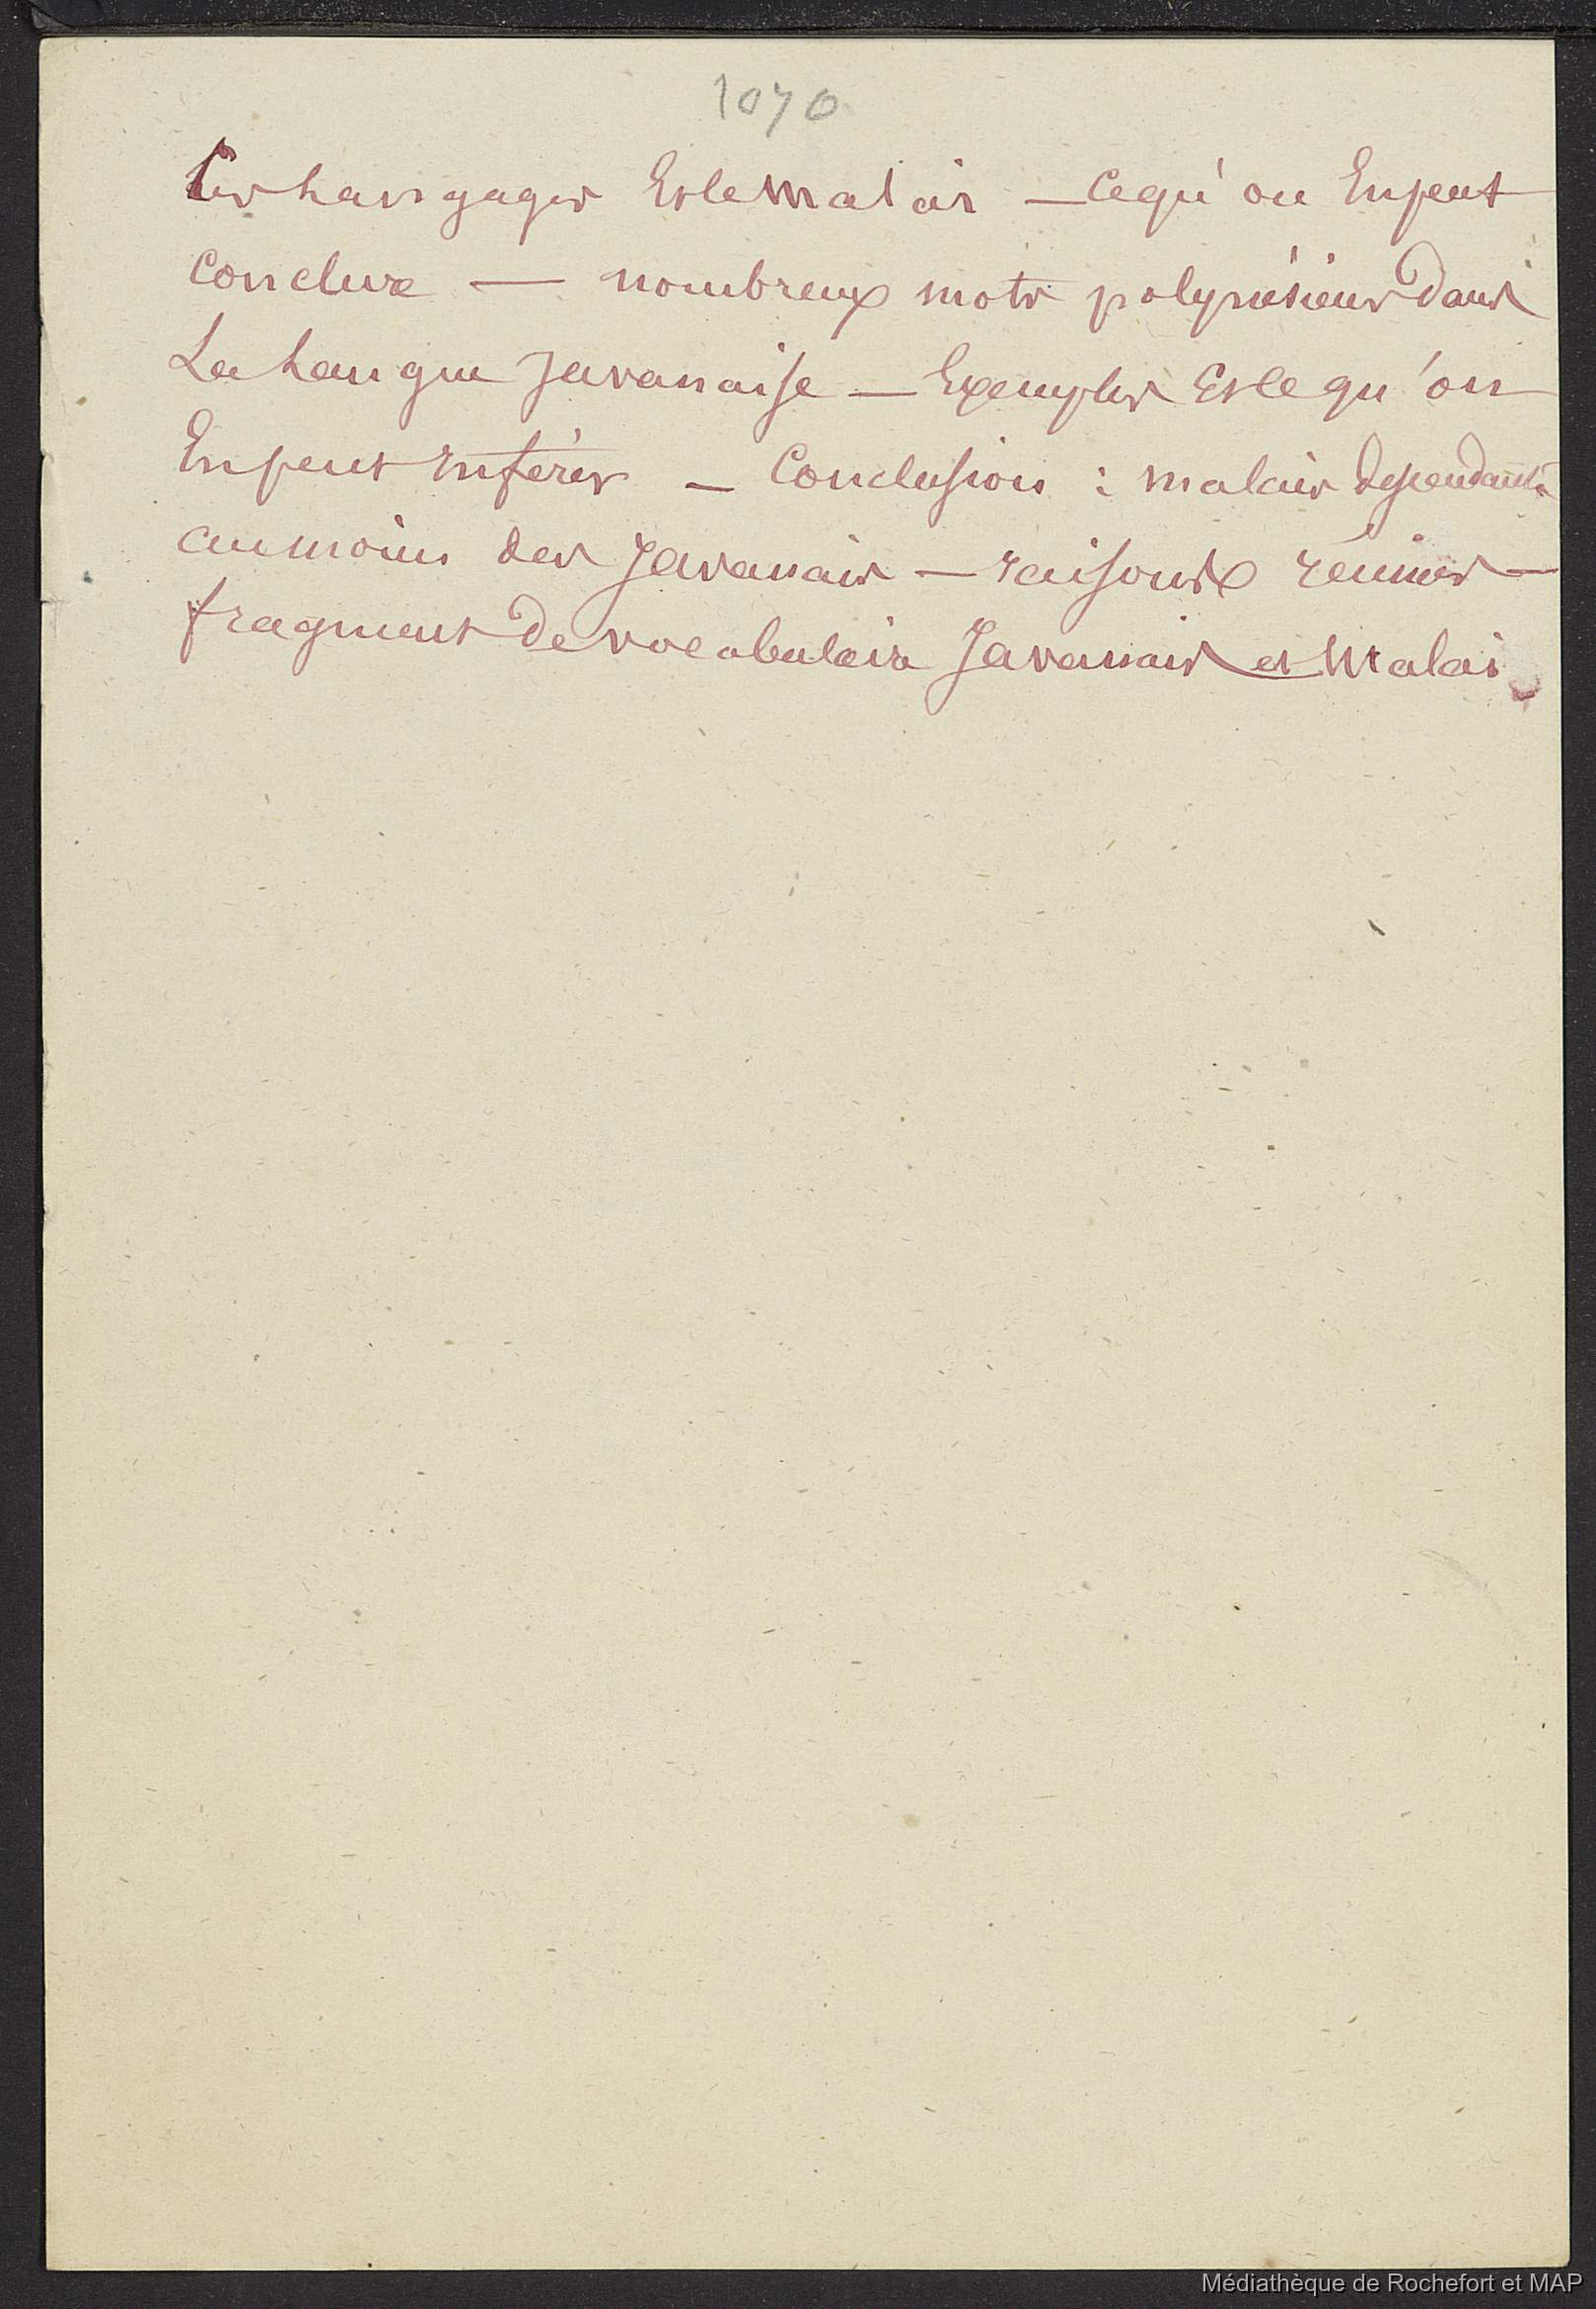 1070
Les Langages Et le Malais — Ce qu'on En peut
Conclure — nombreux mots polynésiens dans
La Langue Javanaise — Exemples Et ce qu'on
En peut inférer — Conclusion : malais descendants
au moins des Javanais — raisons réunies —
fragment de vocabulaire Javanais et Malai
Médiathèque de Rochefort et MAP